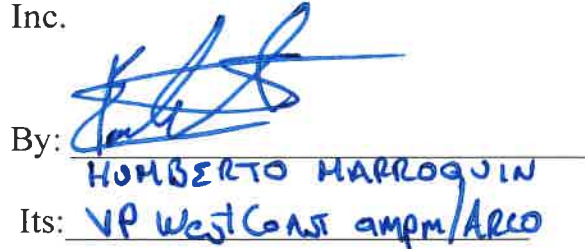 Inc.
By:
HUMBERTO MARROQUIN
Its: VP West Coast ampm/ARCO